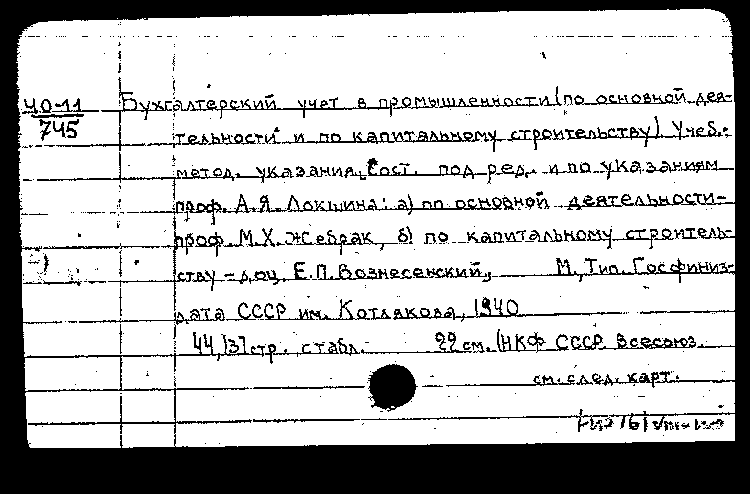 40-11 Бухгалтерский учет в промышленности (по основной дея-
745 тельности и по капитальному строительству). Учеб.-
метод. указания. Сост. под ред. и по указаниям
проф. А.Я. Локшина: а) по основной деятельности-
проф. М.Х. Жебрак, б) по капитальному строитель-
ству - доц. Е.П. Вознесенский. М., Тип. Госфиниз-
дата СССР им. Котлякова, 1940
44, [3] стр. с табл. 22 см. (НКФ СССР. Всесоюз.
см. след. карт.